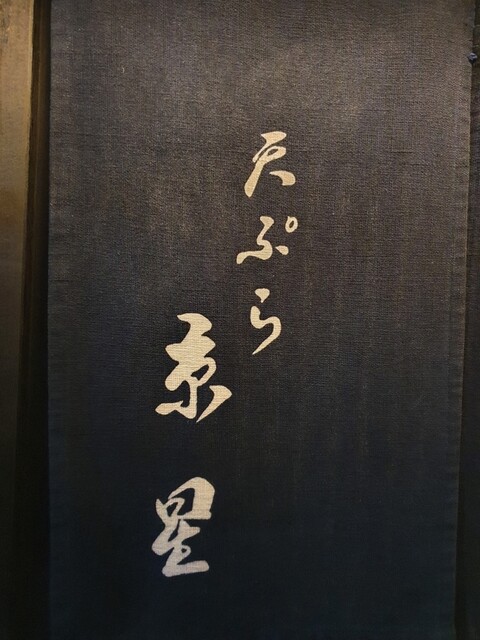 天ぷら
京星